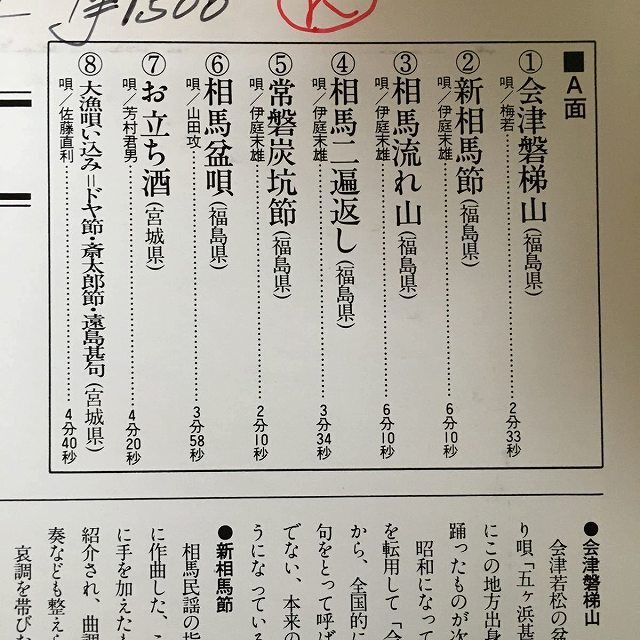 ¥1500
K
■A面
①会津磐梯山(福島県)
唄／梅若……2分33秒
②新相馬節(福島県)
唄／伊庭末雄……6分10秒
③相馬流れ山(福島県)
唄／伊庭末雄……6分10秒
④相馬二遍返し(福島県)
唄／伊庭末雄……3分34秒
⑤常磐炭坑節(福島県)
唄／伊庭末雄……2分10秒
⑥相馬盆唄(福島県)
唄／山田攻……3分58秒
⑦お立ち酒(宮城県)
唄／芳村君男……4分20秒
⑧大漁唄い込み＝ドヤ節・斎太郎節・遠島甚句(宮城県)
唄／佐藤直利……4分40秒
●会津磐梯山
会津若松の盆
り唄「五ヶ浜甚
にこの地方出身
踊ったものが次
昭和になって
を転用して「会
から、全国的に
句をとって呼ば
でない、本来の
うになっている
●新相馬節
相馬民謡の指
に作曲した、こ
に手を加えたも
紹介され、曲調
奏なども整えら
哀調を帯びた